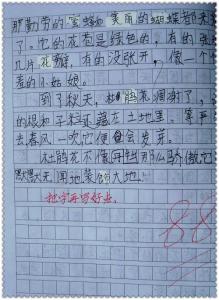 那勤劳的蜜蜂 美丽的蝴蝶都
了。它的花苞是绿色的,有的张
几片花瓣,有的没张开,像一个
羞的小姑娘。
到了秋天,杜鹃花凋谢了,
的根和子 藏在土地里。等
去春风一吹它便会发芽。
杜鹃花不像 那么骄傲它
默默无闻地装饰大地。
把字再写好些。
88